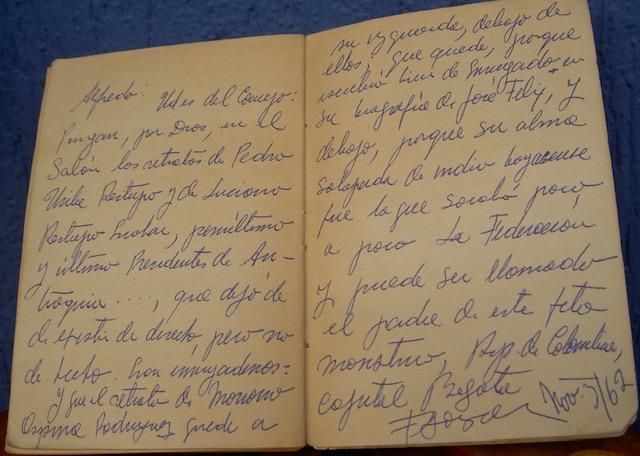 Alfredo: Udes del Concejo:
Pongan, por Dios, en el
Salón los retratos de Pedro
Uribe Restrepo y de Luciano
Restrepo Escobar, penúltimo
y último Presidentes de An-
tioquia ...., que dejó de
de existir de derecho, pero no
de hecho. Son envigadeños=
y que el retrato de Mariano
Ospina Rodríguez quede a
su izquierda, debajo de
ellos: que quede, porque
escribió bien de Envigado en
su biografía de José Félix, y
debajo, porque su alma
solapada de indio boyacense
fue la que socabó poco
a poco La Federación
y puede ser llamado
el padre de este feto
monstruo, Rep. de Colombia,
capital Bogotá
Nov. 3/62